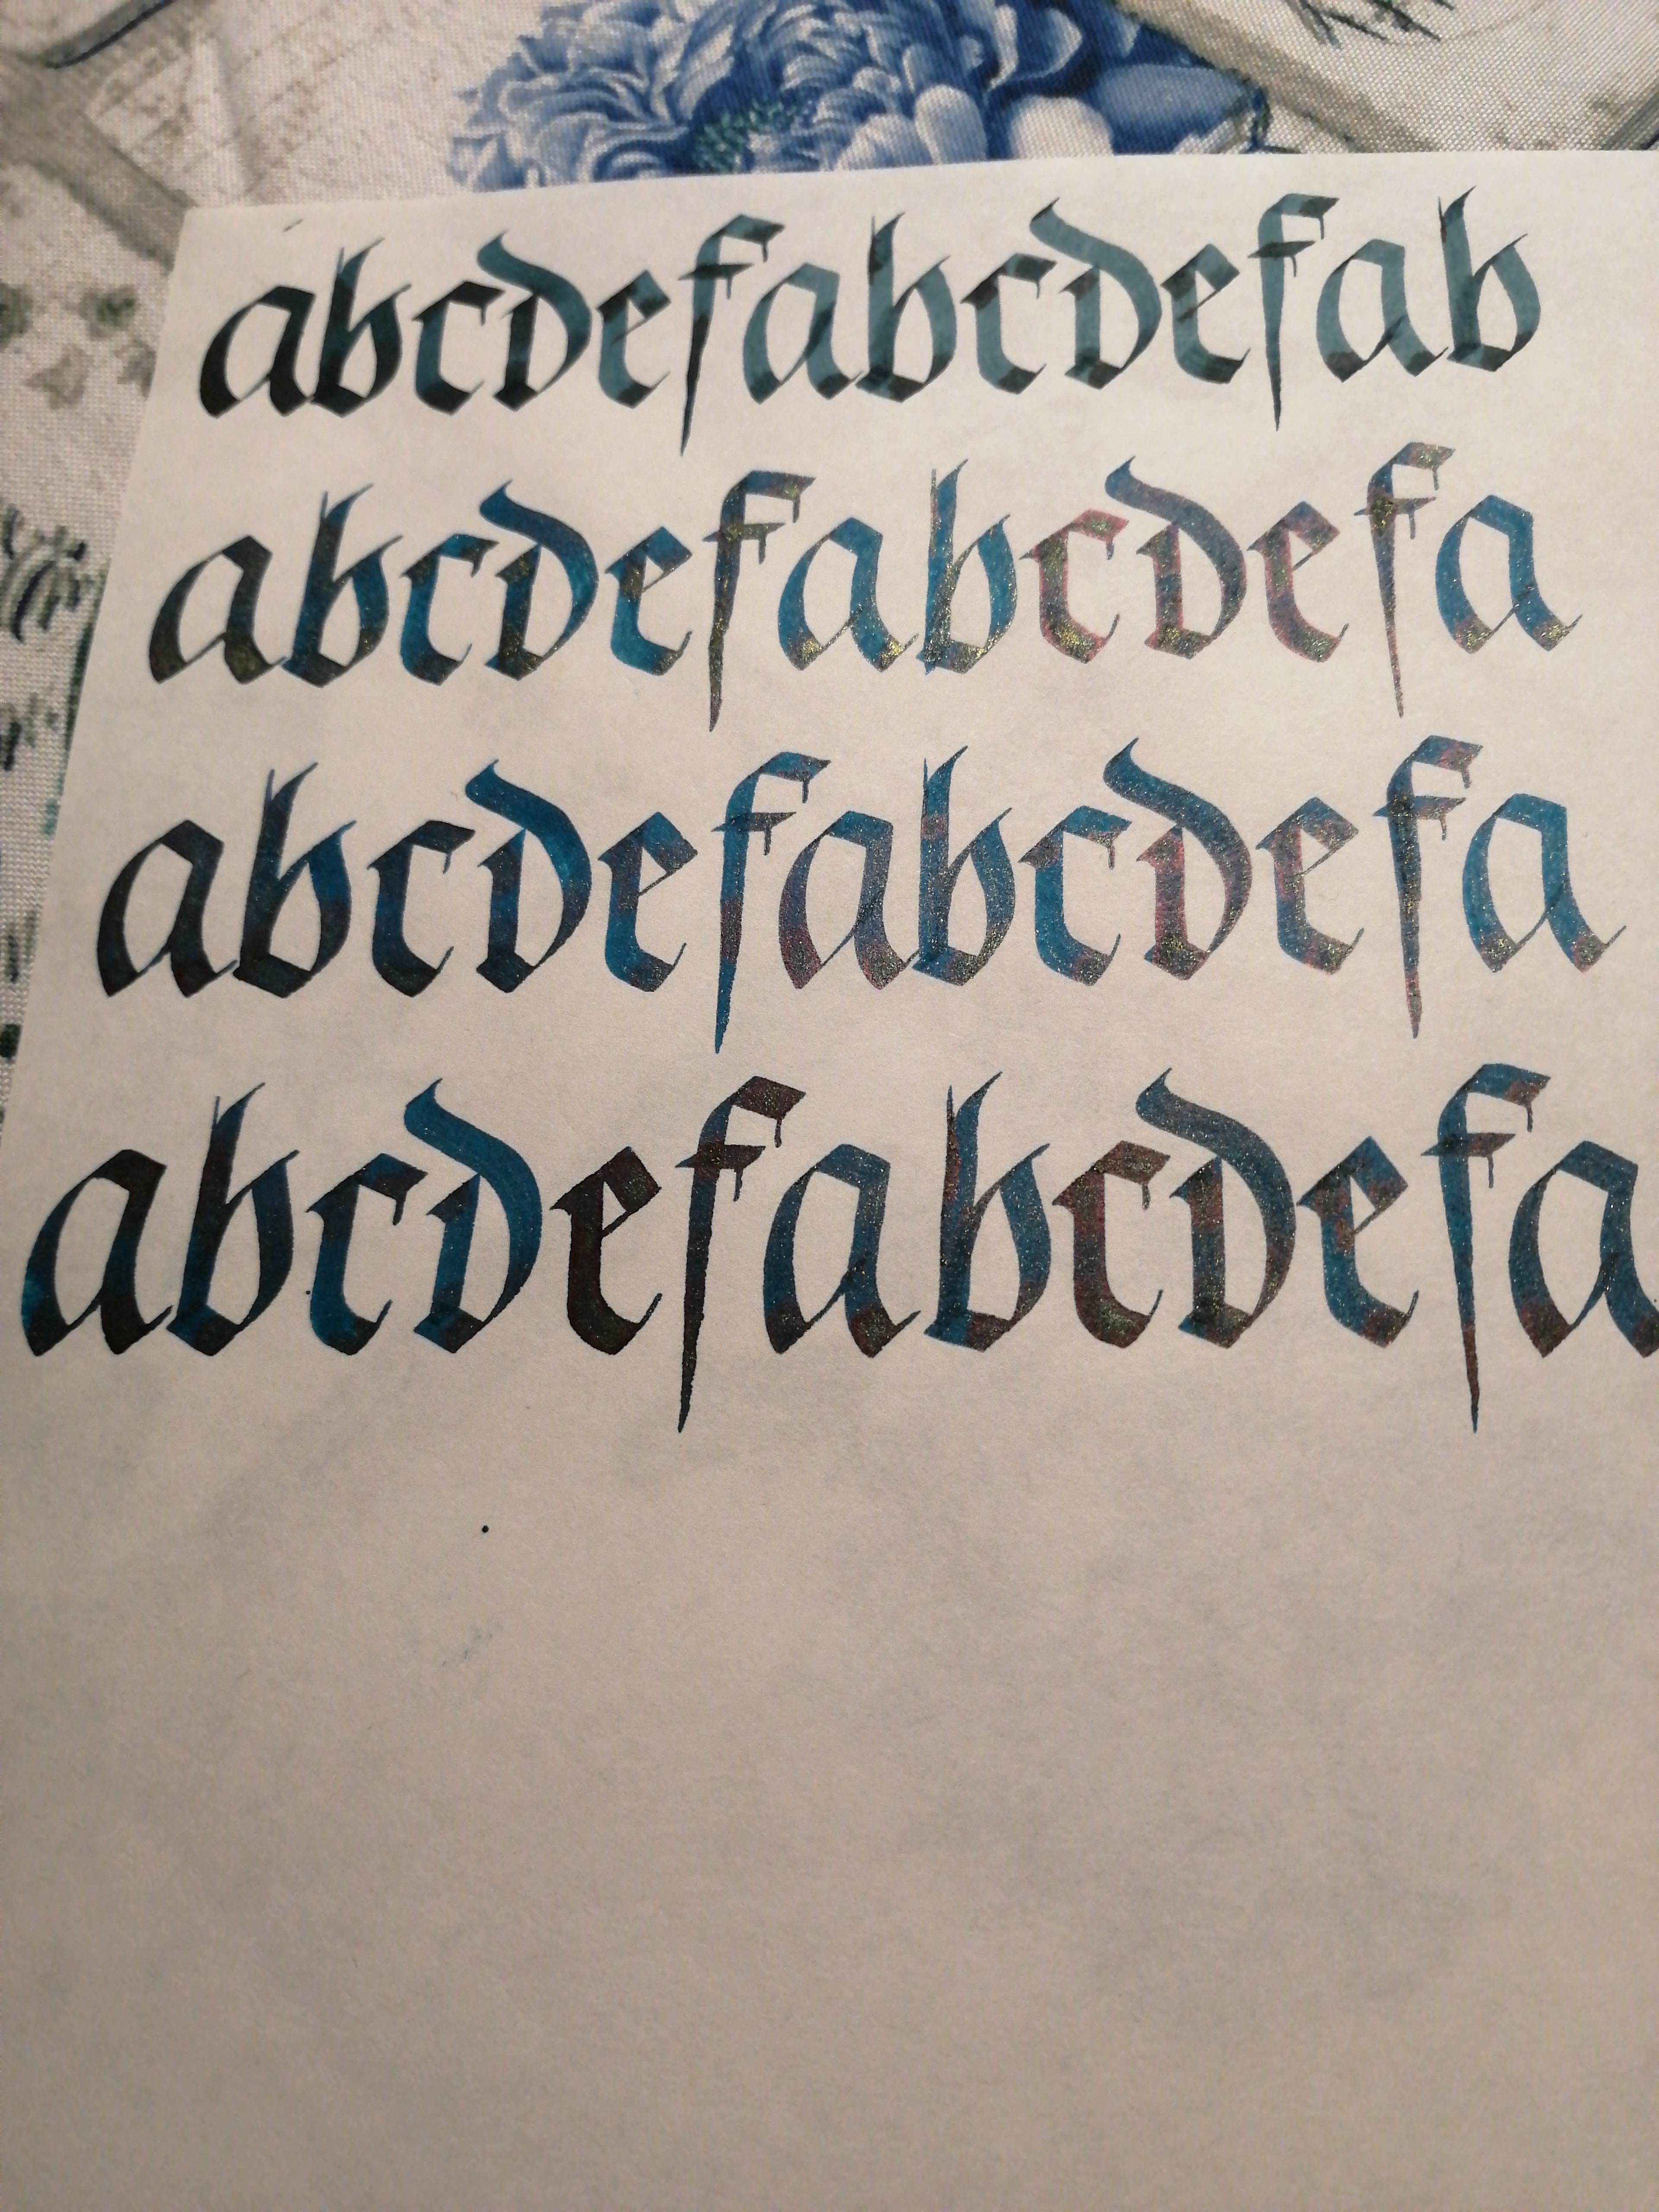 abcdefabcdefab
abcdefabcdefa
abcdefabcdefa
abcdefabcdefa